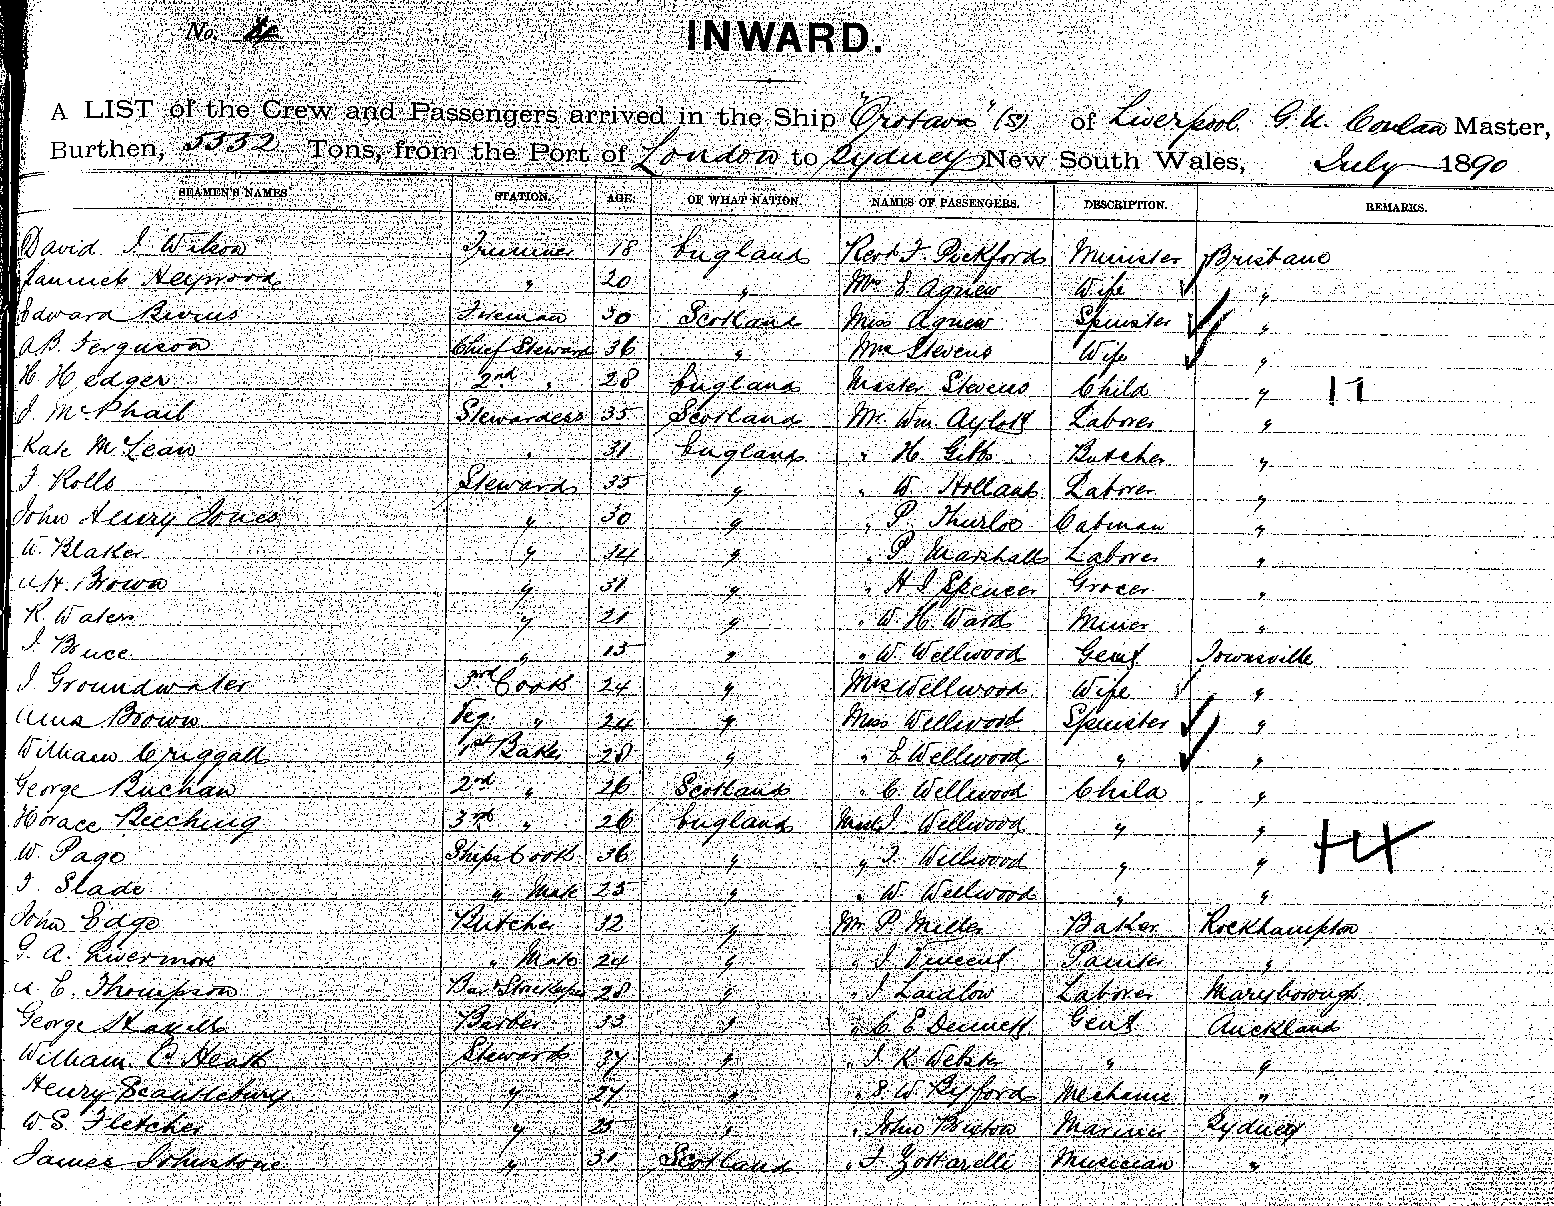 No. 4
INWARD.
A LIST of the Crew and Passengers arrived in the Ship "Orotava" (s) of Liverpool G. N. Conlan Master,
Burthen, 5552 Tons, from the Port of London to Sydney New South Wales, July 1890
SEAMEN'S NAMES STATION. AGE. OF WHAT NATION. NAMES OF PASSENGERS. DESCRIPTION. REMARKS.
David J Wilson Trimmer 18 England Revd F. Pickford Minister Brisbane
Heywood " 20 " Mrs E Agnew Wife "
Edward Bevins Fireman 30 Scotland Miss Agnew Spinster "
A B. Ferguson Chief Steward 36 " Mrs Stevens Wife "
H Hedger 2nd " 28 England Master Stevens Child " 17
J. McPhail Stewardess 35 Scotland Mr. Wm. Aylott Laborer "
Kate McLean " 31 England " H. Gibbs Butcher "
J Rolls Stewards 35 " " W. Holland Laborer "
John Henry Jones " 30 " " P. Thurloe Cabman "
W. Blaker " 34 " " P. Marshall Laborer "
A H. Brown " 31 " " H J Spencer Grocer "
R. Waters " 21 " " W. H. Ward Miner "
J. Bruce " 15 " " W. Wellwood Gent Townsville
J Groundwater 3rd Cook 24 " Mrs Wellwood Wife "
Amos Brown Veg. " 24 " Miss Wellwood Spinster "
William Criggall 1st Baker 28 " " E Wellwood " "
George Buchan 2nd " 26 Scotland " C. Wellwood Child "
Horace Beeching 3rd " 26 England Mast J. Wellwood " "
W Page Ships Cook 36 " " T. Wellwood " "
J. Slade " Mate 25 " " W. Wellwood " "
John Edge Butcher 32 " Mr P. Miller Baker Rockhampton
G. A. Livermore " Mate 24 " " J Vincent Painter "
A. E. Thompson Bar Storekeeper 28 " " J Laidlow Laborer Maryborough
George Barber 33 " " C E Dennett Gent Auckland
William C Heath Stewards 37 " " J. K. Webster " "
Henry Scantlebury " 27 " " S. W. Mechanic "
W. S. Fletcher " 25 " " John Buxton Mariner Sydney
James Johnstone " 31 Scotland " F Zottarelli Musician "